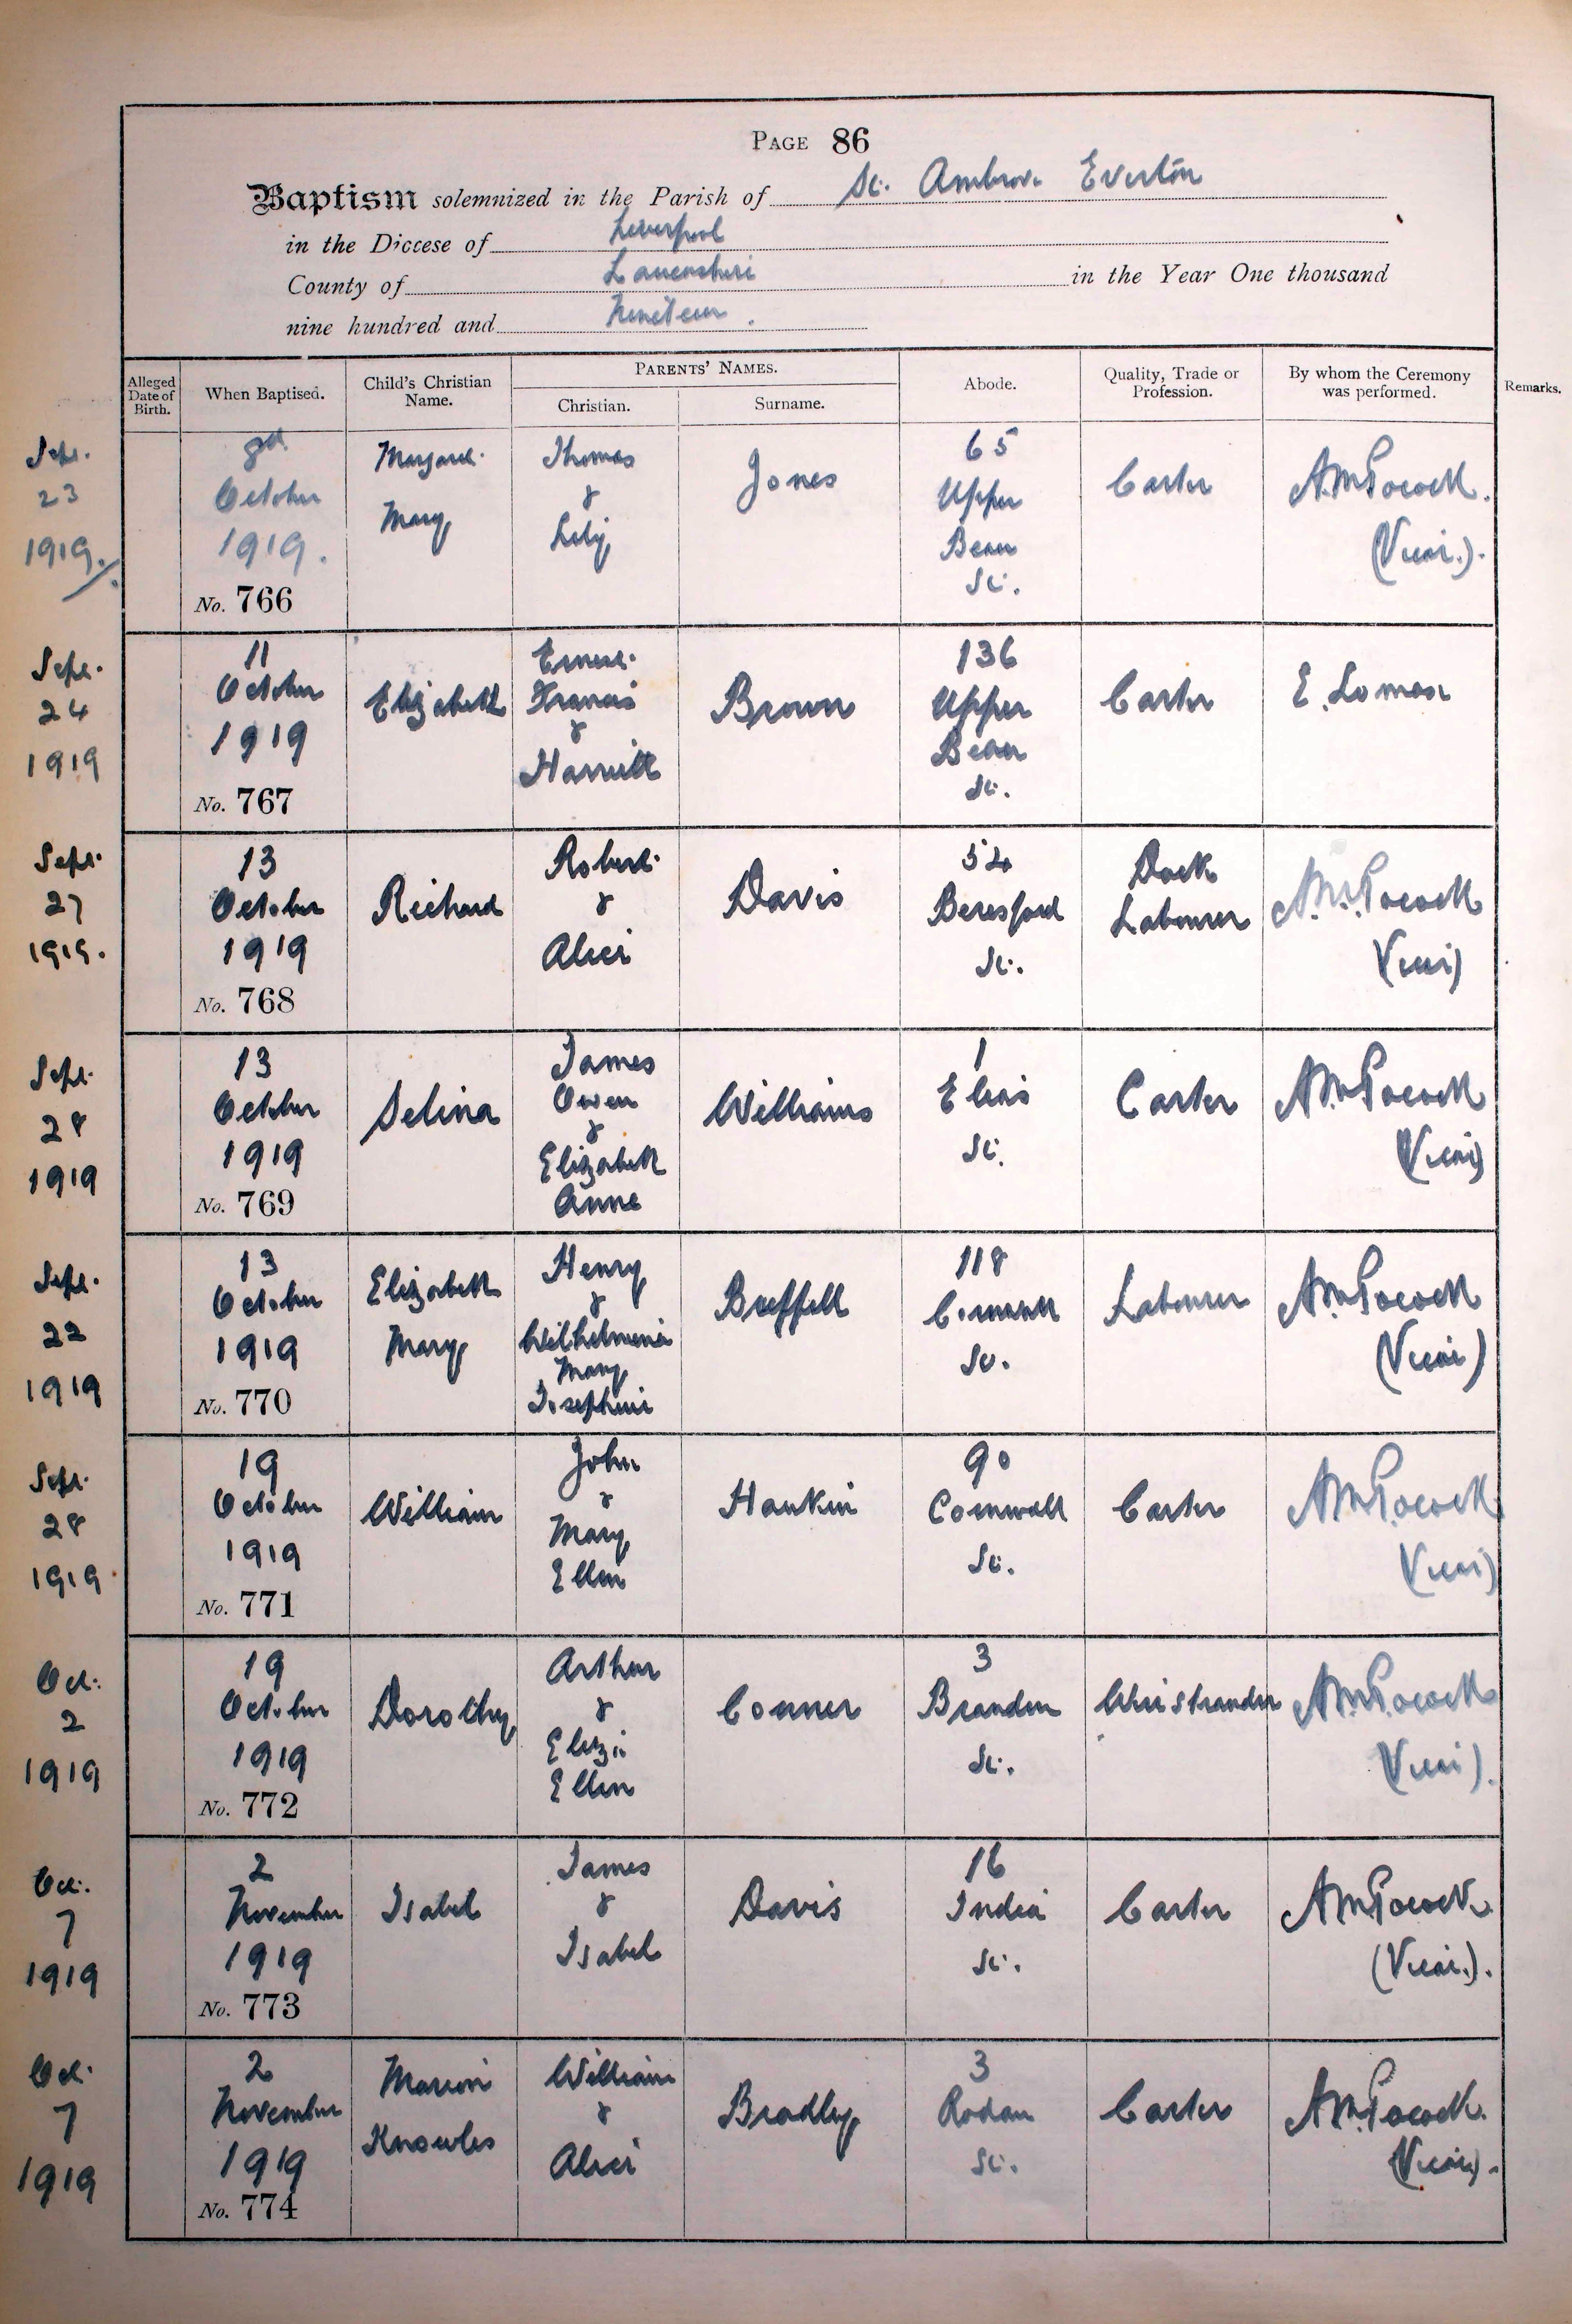 PAGE 86
Baptism solemnized in the Parish of St. Ambrose Everton
in the Diocese of Liverpool
County of Lancashire in the Year One thousand
nine hundred and Nineteen.
Alleged Date of Birth. When Baptised. Child's Christian Name. PARENTS' NAMES. Christian. Surname. Abode. Quality, Trade or Profession. By whom the Ceremony was performed. Remarks.
Sept. 23 1919. 8th October 1919. No. 766 Margaret Mary Thomas & Lily Jones 65 Upper Beau St. Carter A.M. Pocock. (Vicar.).
Sept. 24 1919 11 October 1919 No. 767 Elizabeth Ernest Francis & Harriett Brown 136 Upper Beau St. Carter E. Lomax
Sept. 27 1919. 13 October 1919 No. 768 Richard Robert & Alice Davis 54 Beresford St. Dock Labourer A.M. Pocock Vicar)
Sept. 28 1919 13 October 1919 No. 769 Selina James Owen & Elizabeth Anne Williams 1 Elias St. Carter A.M. Pocock (Vicar)
Sept. 22 1919 13 October 1919 No. 770 Elizabeth Mary Henry & Wilhelmina Mary Josephine Breffell 118 Cornwall St. Labourer A.M. Pocock (Vicar)
Sept. 28 1919 19 October 1919 No. 771 William John & Mary Ellen Hankin 90 Cornwall St. Carter A.M. Pocock Vicar)
Oct. 2 1919 19 October 1919 No. 772 Dorothy Arthur & Eliza Ellen Conner 3 Brandon St. A.M. Pocock (Vicar).
Oct. 7 1919 2 November 1919 No. 773 Isabel James & Isabel Davis 16 India St. Carter A.M. Pocock. (Vicar.).
Oct. 7 1919 2 November 1919 No. 774 Marion Knowles William & Alice Bradley 3 St. Carter A.M. Pocock. (Vicar).